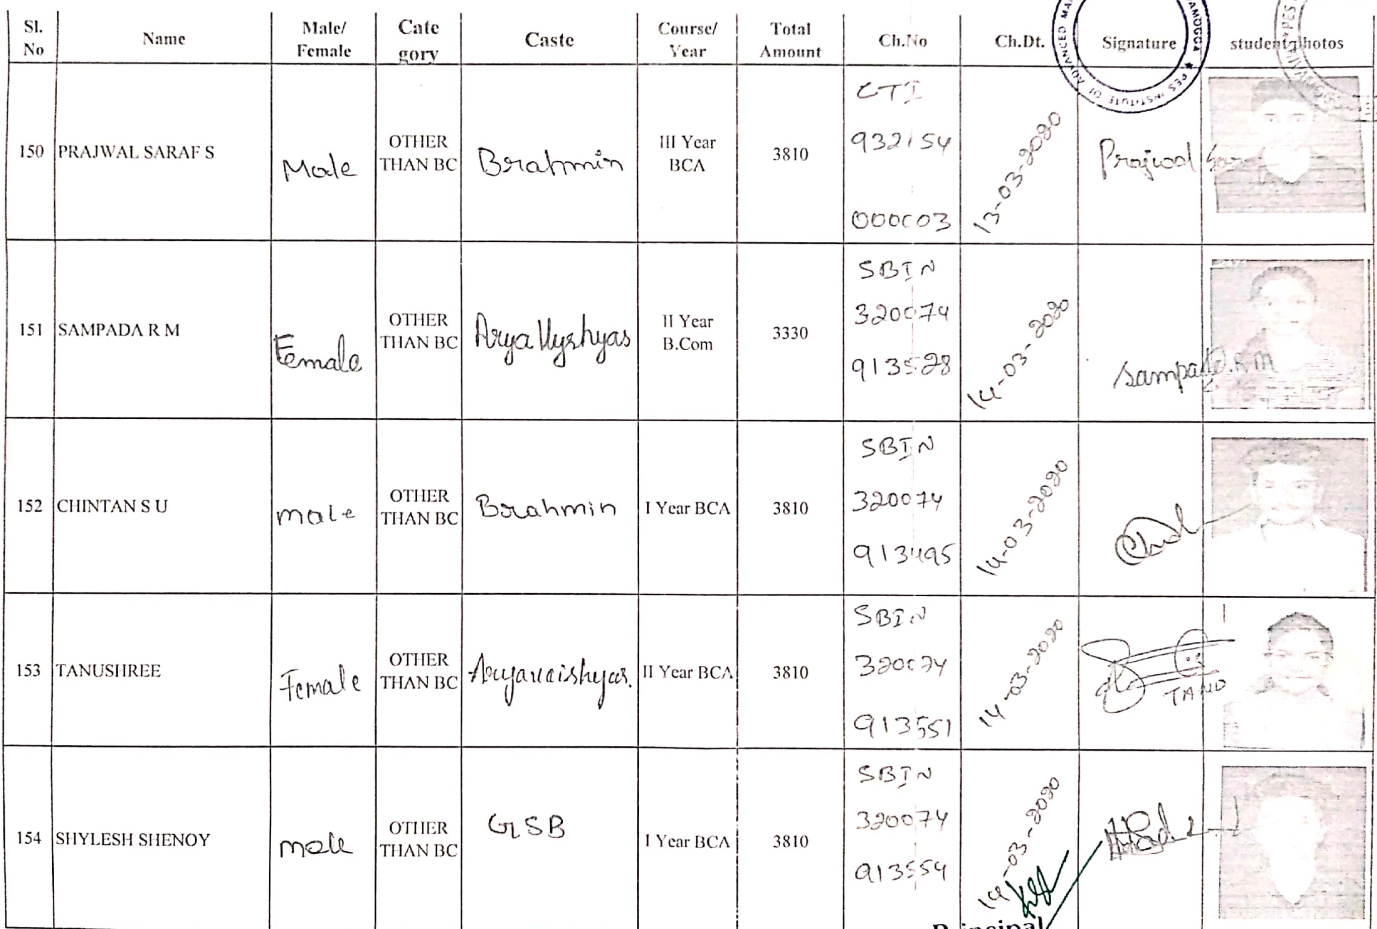 Sl. No Name Male/ Female Cate gory Caste Course/ Year Total Amount Ch.No Ch.Dt. Signature student photos
ADVANCED
PES INSTITUTE OF
PES
150 PRAJWAL SARAF S Male OTHER THAN BC Brahmin III Year BCA 3810 932154 000003 13-03-2020 Prajwal
151 SAMPADA R M Female OTHER THAN BC Arya Vyshyas II Year B.Com 3330 SBIN 320074 913528 14-03-2020 Sampada.R M
152 CHINTAN S U male OTHER THAN BC Brahmin I Year BCA 3810 SBIN 320074 913495 14-03-2020
153 TANUSHREE Female OTHER THAN BC Aryavaishyas. II Year BCA 3810 SBIN 320074 913551 14-03-2020
154 SHYLESH SHENOY male OTHER THAN BC GSB I Year BCA 3810 SBIN 320074 913554 14-03-2020
Principal